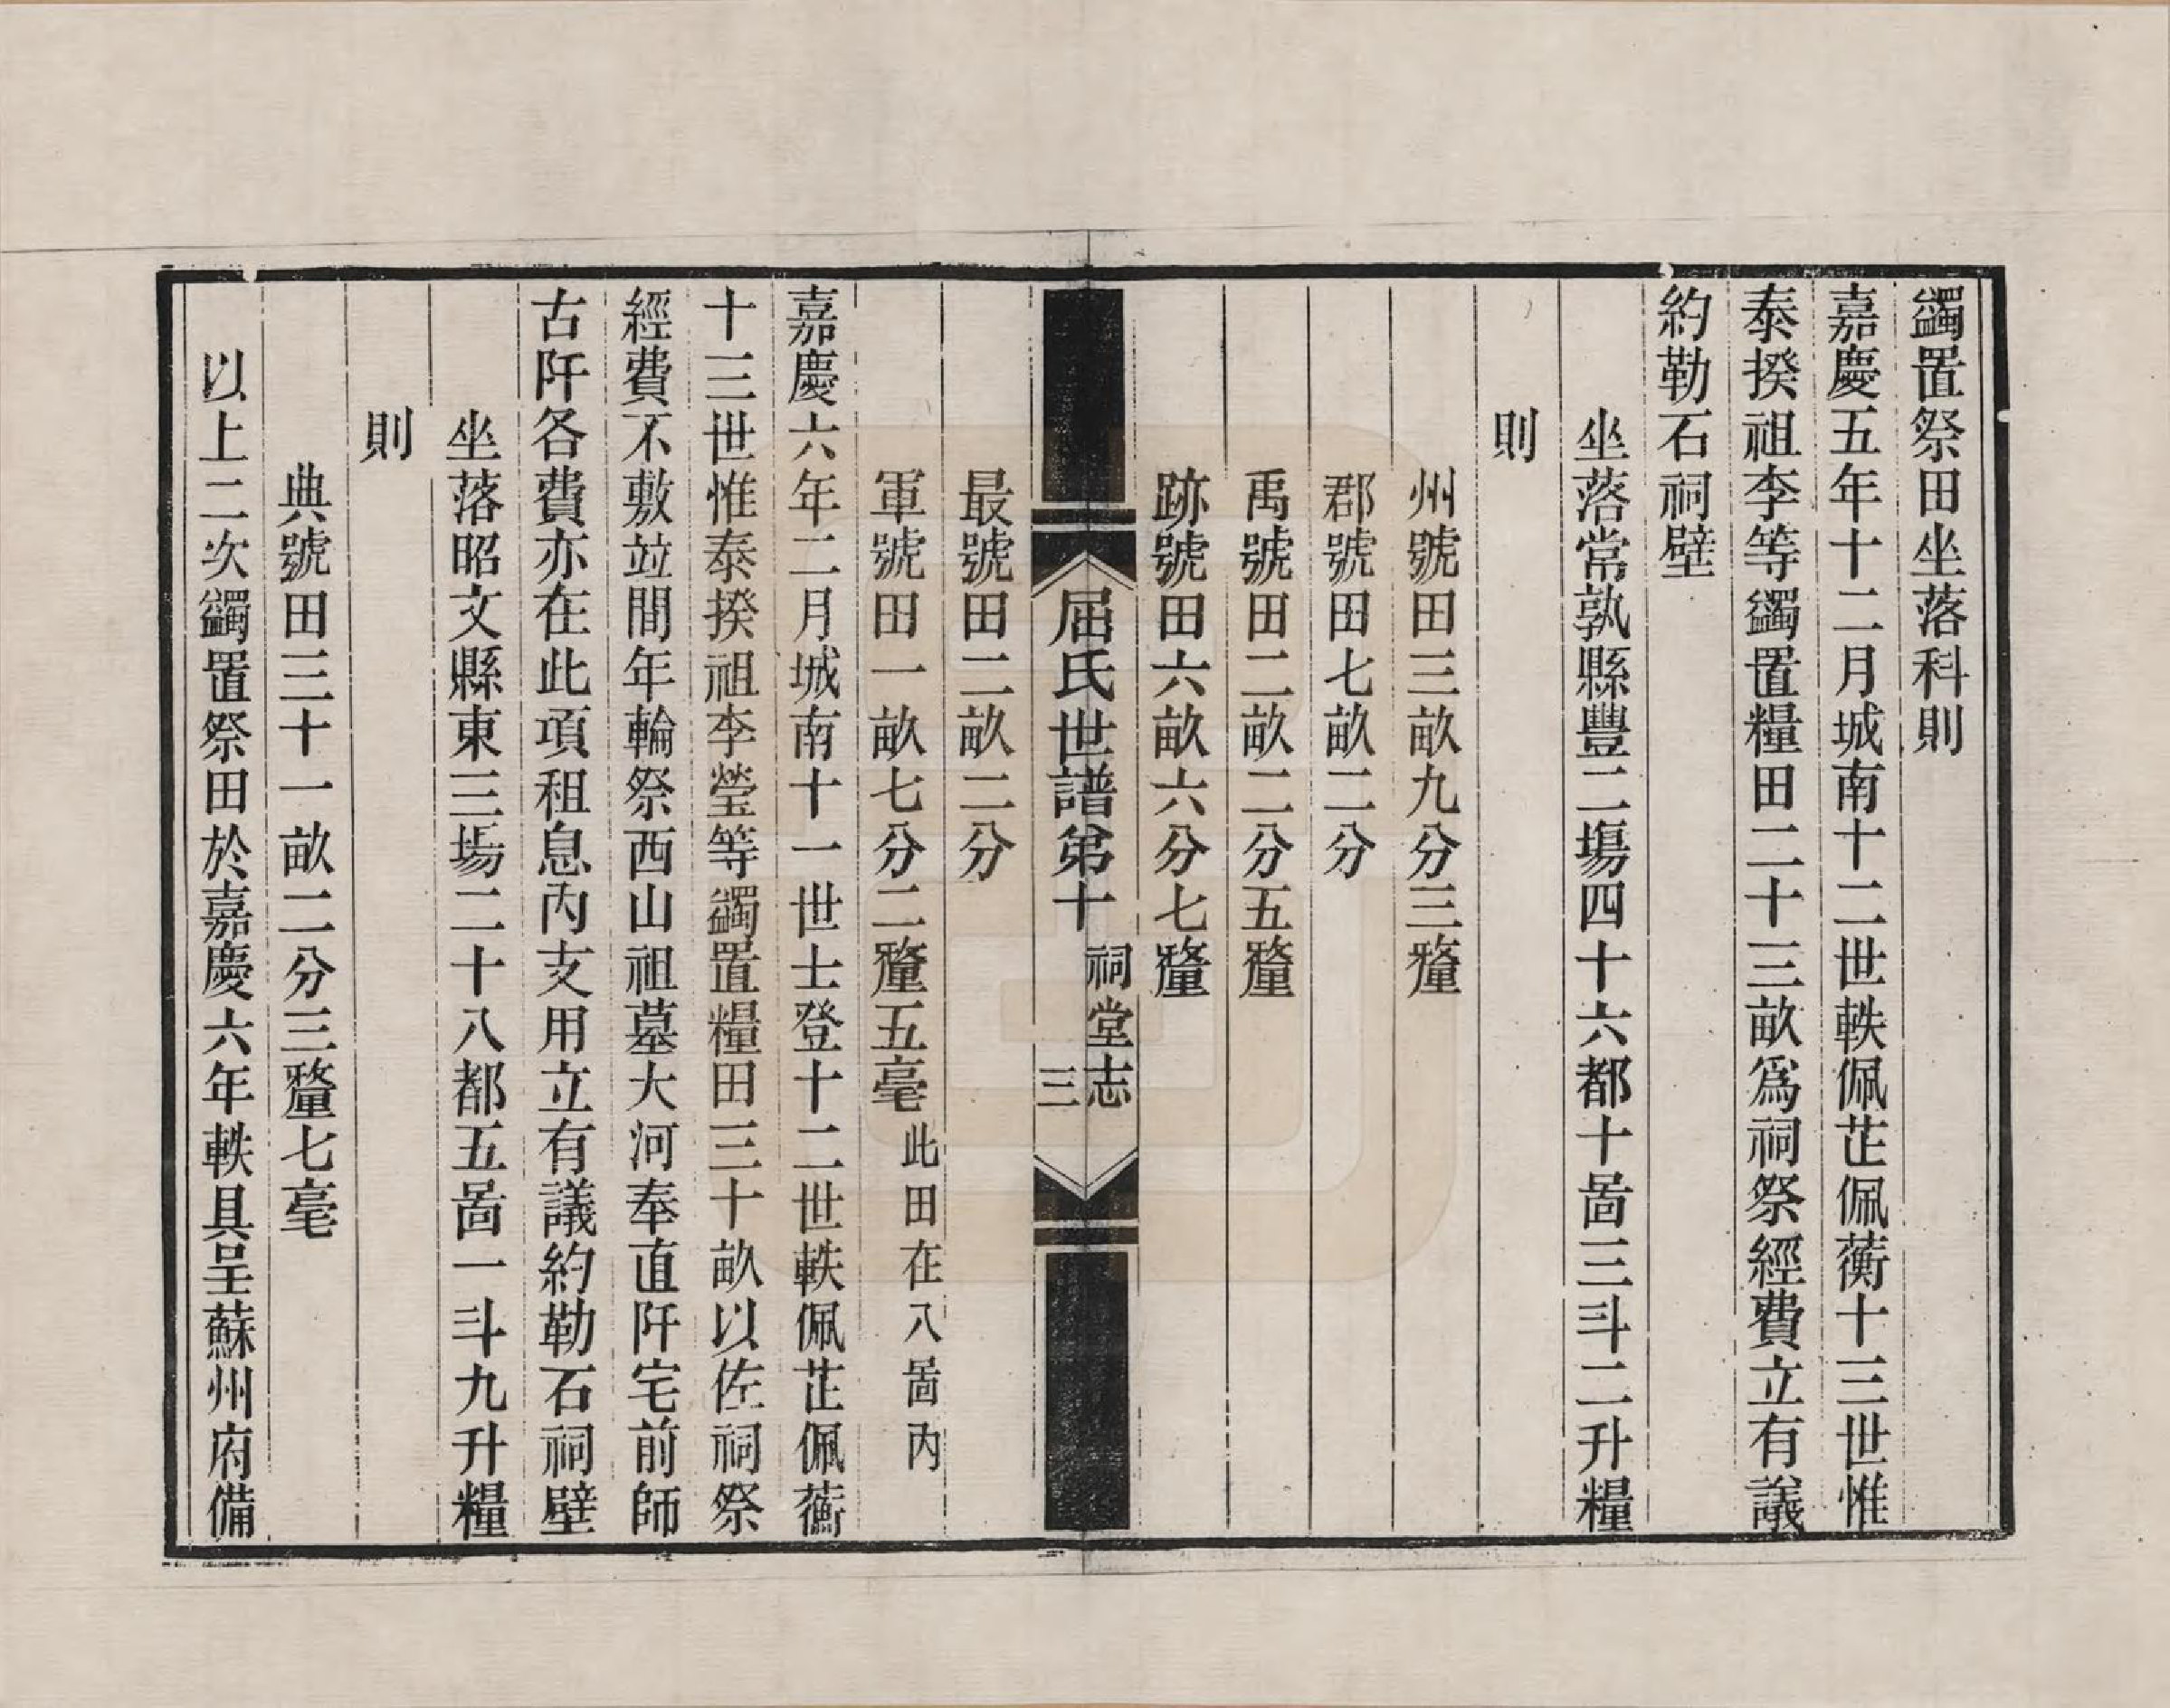 蠲置祭田坐落科則
嘉慶五年十二月城南十二世軼佩芷佩蘅十三世惟
泰揆祖李等蠲置糧田二十三畝爲祠祭經費立有議
約勒石祠壁
坐落常孰縣豐二場四十六都十啚三斗二升糧
則
州號田三畝九分三釐
郡號田七畝二分
禹號田二畝二分五釐
跡號田六畝六分七釐
屈氏世譜弟十
祠堂志
三
最號田二畝二分
軍號田一畝七分二釐五毫此田在八啚內
嘉慶六年二月城南十一世士登十二世軼佩芷佩蘅
十三世惟泰揆祖李瑩等蠲置糧田三十畝以佐祠祭
經費不敷竝間年輪祭西山祖墓大河奉直阡宅前師
古阡各費亦在此項租息內支用立有議約勒石祠壁
坐落昭文縣東三場二十八都五啚一斗九升糧
則
典號田三十一畝二分三釐七毫
以上二次蠲置祭田於嘉慶六年軼具呈蘇州府備